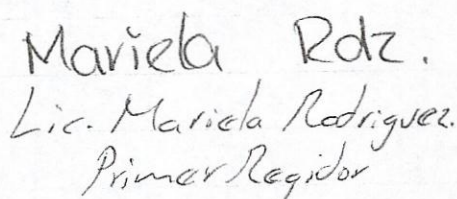 Mariela Rdz.
Lic. Mariela Rodriguez.
Primer Regidor